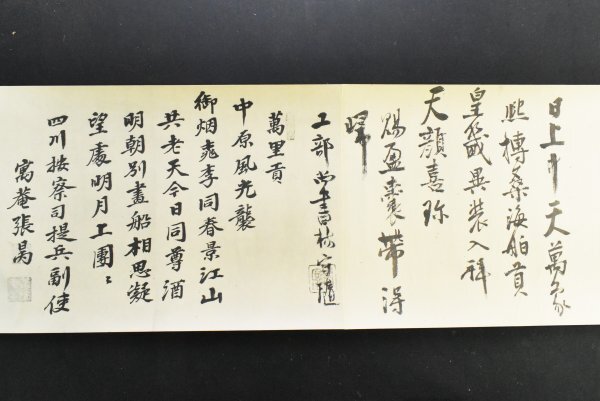 日上中天萬象
熙摶桑海舶貢
皇畿異裝入拜
天顏喜珎
賜盈囊帶得
歸
工部尚書
萬里貢
中原風光襲
御烟嵐李同春景江山
共老天今日同尊酒
明朝別畫船相思凝
望處明月上團〻
四川按察司提兵副使
寓菴張昺